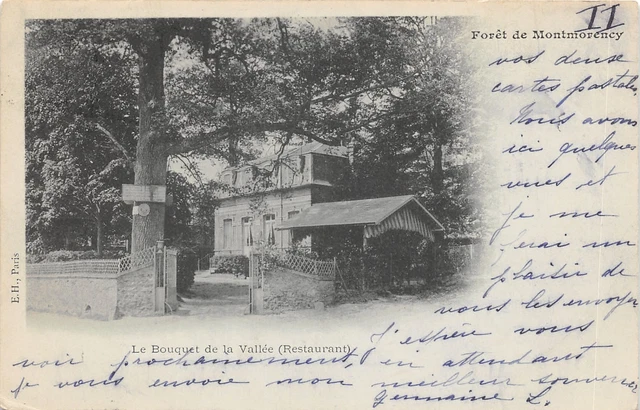 II
Forêt de Montmorency
vos deux
cartes postales,
Nous avons
ici quelques
vues et
je me
ferai un
plaisir de
vous les envoyer
J'espère vous
E.H., Paris
Le Bouquet de la Vallée (Restaurant)
voir prochainement, en attendant
je vous envoie mon meilleur souvenir
Germaine L.